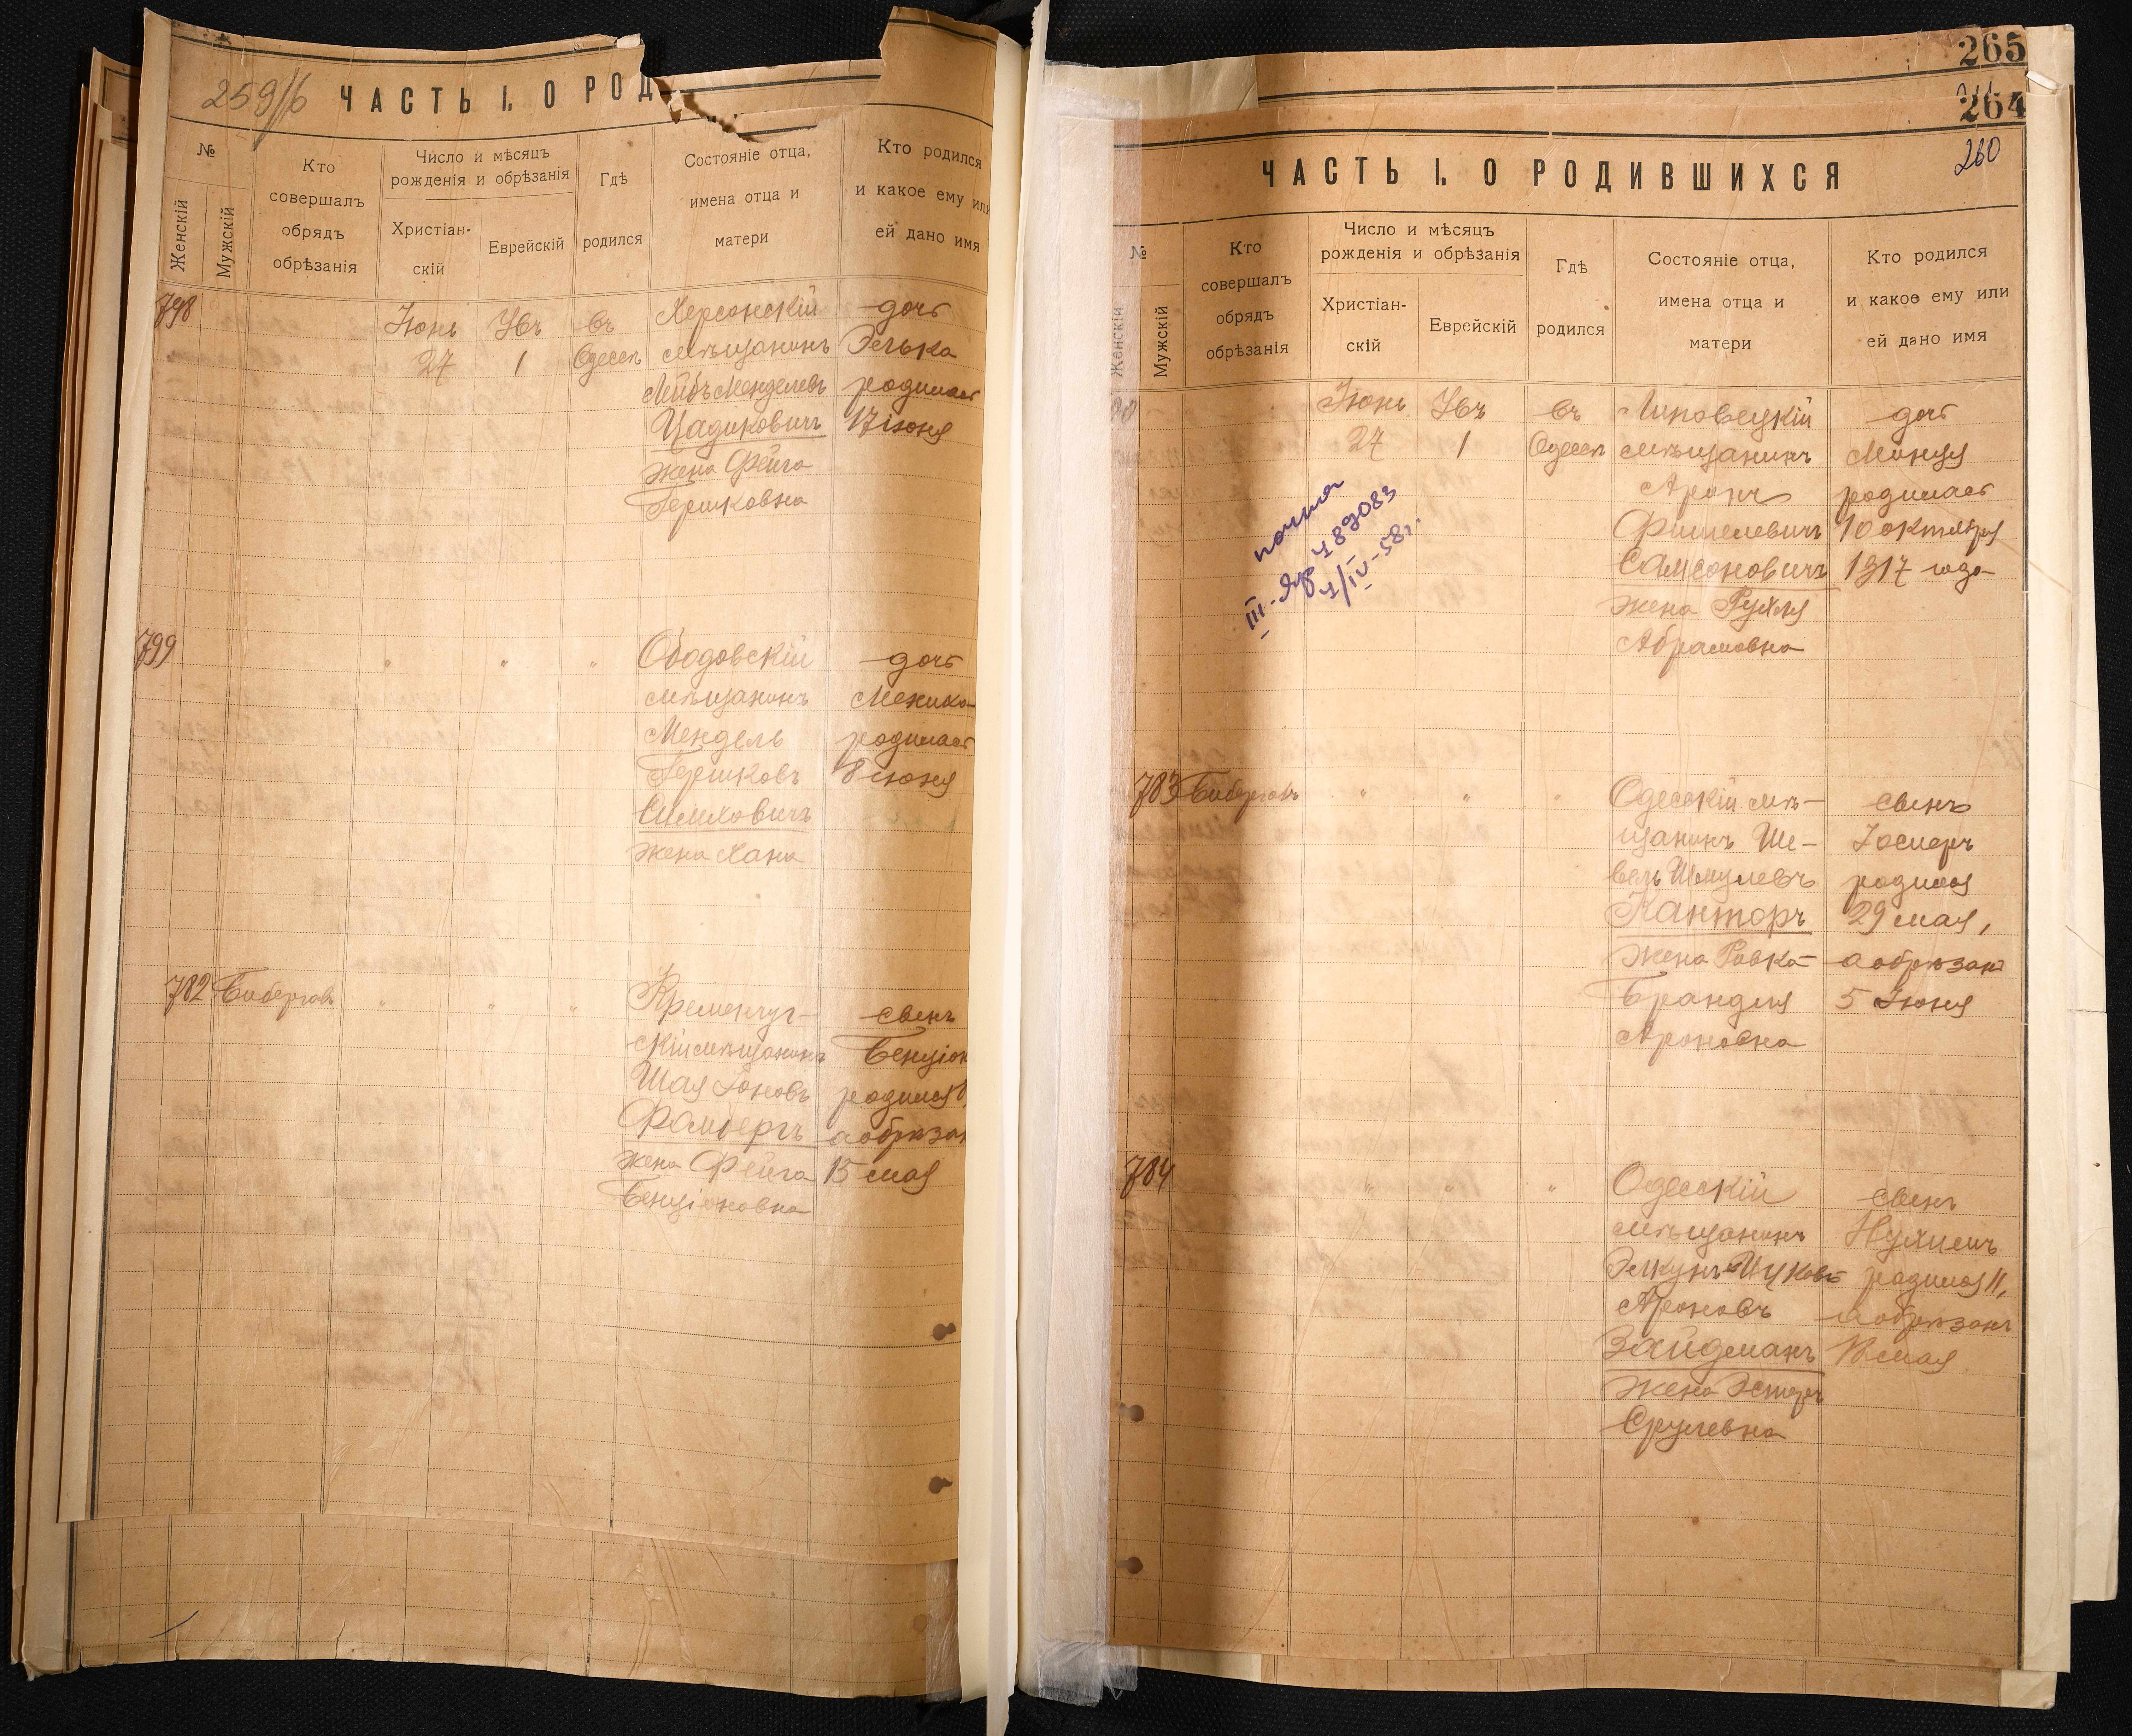 259/б
ЧАСТЬ I. О РОД
№
Женскій
Мужскій
Кто
совершалъ
обрядъ
обрѣзанія
Число и мѣсяцъ
рожденія и обрѣзанія
Христіан-
скій
Еврейскій
Гдѣ
родился
Состояніе отца,
имена отца и
матери
Кто родился
и какое ему или
ей дано имя
798
Іюнь
27
1
въ
Одессѣ
Херсонскій
мѣщанинъ
Лейбъ Менделевъ
Цадиковичъ
жена Фейга
Гершковна
дочь
Элька
родилась
17 іюня
799
" " "
Ободовскій
мѣщанинъ
Мендель
Гершковъ
жена Хана
дочь
родилась
8 іюня
782
" " "
Кременчуг-
скій мѣщанинъ
Шая
жена Фейга
Бенціоновна
сынъ
Бенціон
родился 8,
а обрѣзан
15 мая
265
264
260
ЧАСТЬ I. О РОДИВШИХСЯ
№
Женскій
Мужскій
Кто
совершалъ
обрядъ
обрѣзанія
Число и мѣсяцъ
рожденія и обрѣзанія
Христіан-
скій
Еврейскій
Гдѣ
родился
Состояніе отца,
имена отца и
матери
Кто родился
и какое ему или
ей дано имя
Іюнь
27
1
въ
Одессѣ
Липовецкій
мѣщанинъ
Аронъ
Фишелевичъ
Самсоновичъ
жена Рухля
Абрамовна
дочь
родилась
10 октября
1917 года
III-Яр 489083
1/IV-58г.
783
" " "
Одесскій мѣ-
щанинъ Ше-
вель Шмулевъ
Канторъ
жена Ривка-
Брандля
Ароновна
сынъ
родился
29 мая,
а обрѣзанъ
5 Іюня
784
" " "
Одесскій
мѣщанинъ
Ароновъ
Зайдманъ
жена Эстеръ
Срулевна
сынъ
Нухимъ
родился 11,
а обрѣзанъ
18 мая